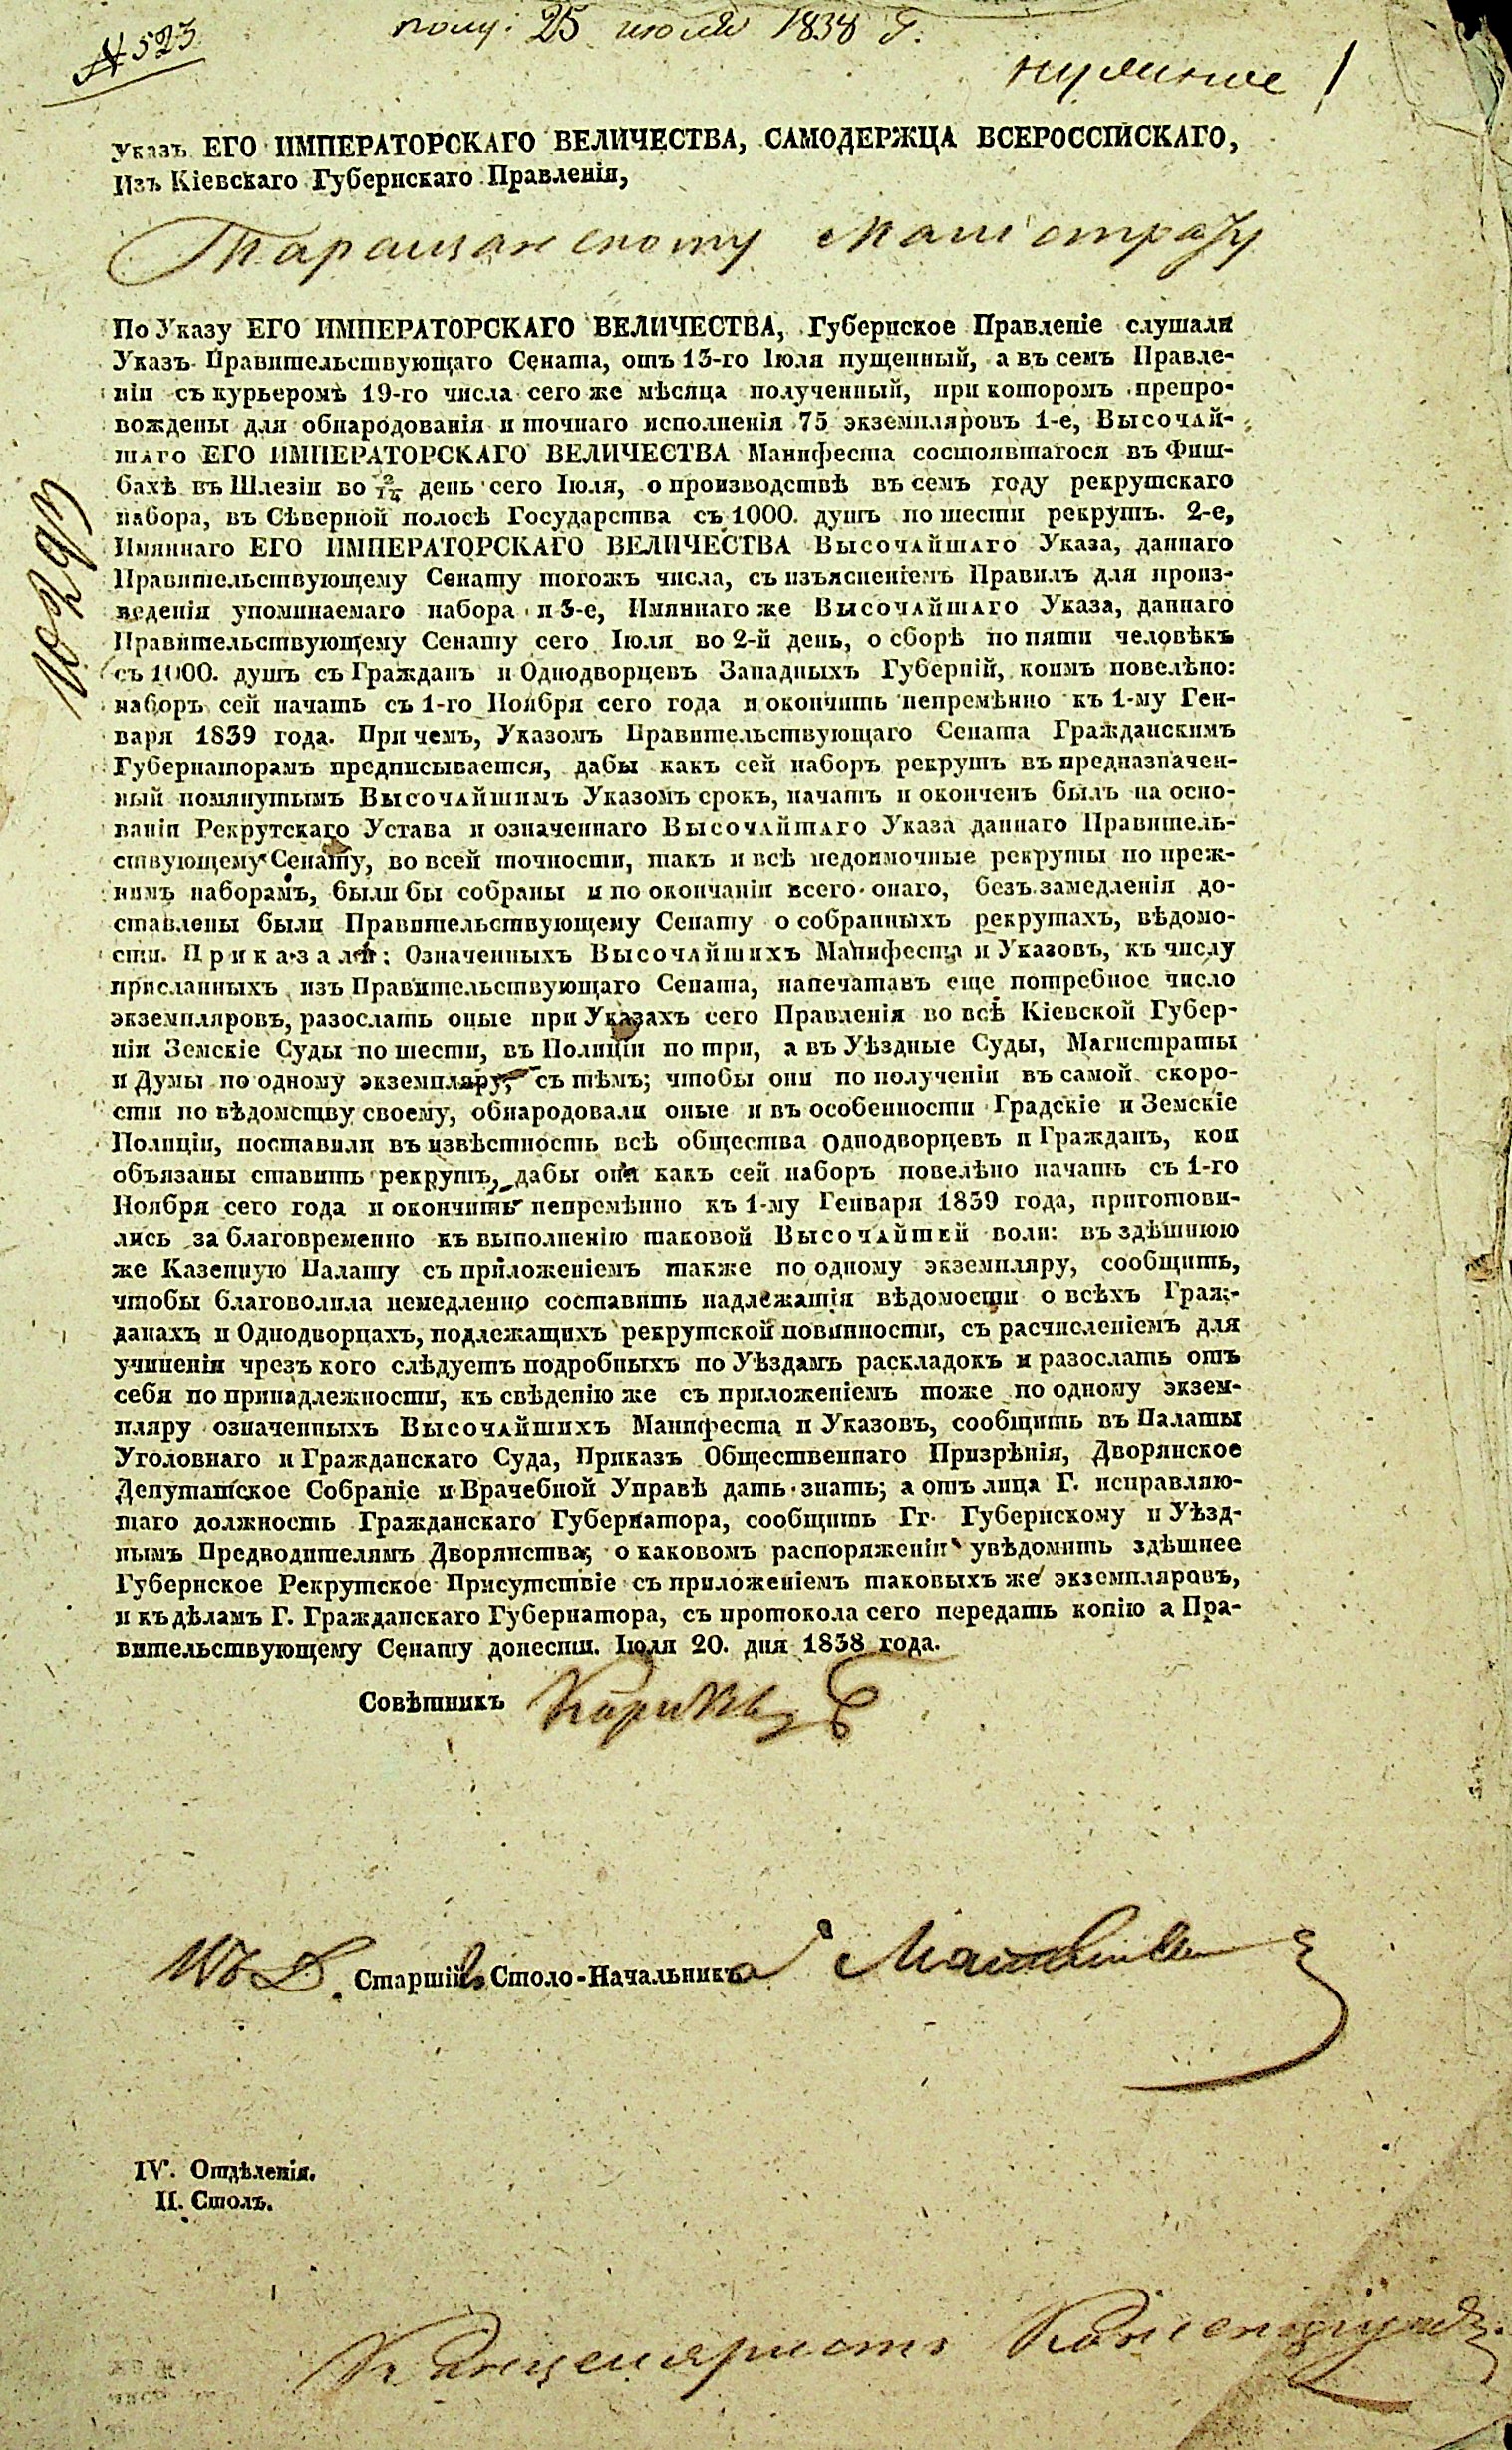 № 523
полу: 25 июля 1838 г.
Указъ ЕГО ИМПЕРАТОРСКАГО ВЕЛИЧЕСТВА, САМОДЕРЖЦА ВСЕРОССІЙСКАГО,
Изъ Кіевскаго Губернскаго Правленія,
Таращанскому Магістрату
По Указу ЕГО ИМПЕРАТОРСКАГО ВЕЛИЧЕСТВА, Губернское Правленіе слушали
Указъ Правительствующаго Сената, отъ 13-го Іюля пущенный, а въ семъ Правле-
ніи съ курьеромъ 19-го числа сего же мѣсяца полученный, при которомъ препро-
вождены для обнародованія и точнаго исполненія 75 экземпляровъ 1-е, Высочай-
шаго ЕГО ИМПЕРАТОРСКАГО ВЕЛИЧЕСТВА Манифеста состоявшагося въ Фиш-
бахѣ въ Шлезіи во 2/14 день сего Іюля, о производствѣ въ семъ году рекрутскаго
набора, въ Сѣверной полосѣ Государства съ 1000. душъ по шести рекрутъ. 2-е,
Имяннаго ЕГО ИМПЕРАТОРСКАГО ВЕЛИЧЕСТВА Высочайшаго Указа, даннаго
Правительствующему Сенату тогожъ числа, съ изъясненіемъ Правилъ для произ-
веденія упоминаемаго набора и 3-е, Имяннаго же Высочайшаго Указа, даннаго
Правительствующему Сенату сего Іюля во 2-й день, о сборѣ по пяти человѣкъ
съ 1000. душъ съ Гражданъ и Однодворцевъ Западныхъ Губерній, коимъ повелѣно:
наборъ сей начать съ 1-го Ноября сего года и окончить непремѣнно къ 1-му Ген-
варя 1839 года. При чемъ, Указомъ Правительствующаго Сената Гражданскимъ
Губернаторамъ предписывается, дабы какъ сей наборъ рекрутъ въ предназначен-
ный помянутымъ Высочайшимъ Указомъ срокъ, начатъ и оконченъ былъ на осно-
ваніи Рекрутскаго Устава и означеннаго Высочайшаго Указа даннаго Правитель-
ствующему Сенату, во всей точности, такъ и всѣ недоимочные рекруты по преж-
нимъ наборамъ, были бы собраны и по окончаніи всего онаго, безъ замедленія до-
ставлены были Правительствующему Сенату о собранныхъ рекрутахъ, вѣдомо-
сти. Приказали: Означенныхъ Высочайшихъ Манифеста и Указовъ, къ числу
присланныхъ изъ Правительствующаго Сената, напечатавъ еще потребное число
экземпляровъ, разослать оные при Указахъ сего Правленія во всѣ Кіевской Губер-
ніи Земскіе Суды по шести, въ Полиціи по три, а въ Уѣздные Суды, Магистраты
и Думы по одному экземпляру, съ тѣмъ; чтобы они по полученіи въ самой скоро-
сти по вѣдомству своему, обнародовали оные и въ особенности Градскіе и Земскіе
Полиціи, поставили въ извѣстность всѣ общества Однодворцевъ и Гражданъ, кои
объязаны ставить рекрутъ, дабы они какъ сей наборъ повелѣно начать съ 1-го
Ноября сего года и окончить непремѣнно къ 1-му Генваря 1839 года, приготови-
лись за благовременно къ выполненію таковой Высочайшей воли: въ здѣшнюю
же Казенную Палату съ приложеніемъ также по одному экземпляру, сообщить,
чтобы благоволила немедленно составить надлежащія вѣдомости о всѣхъ Граж-
данахъ и Однодворцахъ, подлежащихъ рекрутской повинности, съ расчисленіемъ для
учиненія чрезъ кого слѣдуетъ подробныхъ по Уѣздамъ раскладокъ и разослать отъ
себя по принадлежности, къ свѣденію же съ приложеніемъ тоже по одному экзем-
пляру означенныхъ Высочайшихъ Манифеста и Указовъ, сообщить въ Палаты
Уголовнаго и Гражданскаго Суда, Приказъ Общественнаго Призрѣнія, Дворянское
Депутатское Собраніе и Врачебной Управѣ дать знать; а отъ лица Г. исправляю-
щаго должность Гражданскаго Губернатора, сообщить Гг. Губернскому и Уѣзд-
нымъ Предводителямъ Дворянства; о каковомъ распоряженіи увѣдомить здѣшнее
Губернское Рекрутское Присутствіе съ приложеніемъ таковыхъ же экземпляровъ,
и къ дѣламъ Г. Гражданскаго Губернатора, съ протокола сего передать копію а Пра-
вительствующему Сенату донести. Іюля 20. дня 1838 года.
Совѣтникъ
Старшій Столо-Начальникъ
IV. Отдѣленія.
II. Столъ.
Канцеляристъ